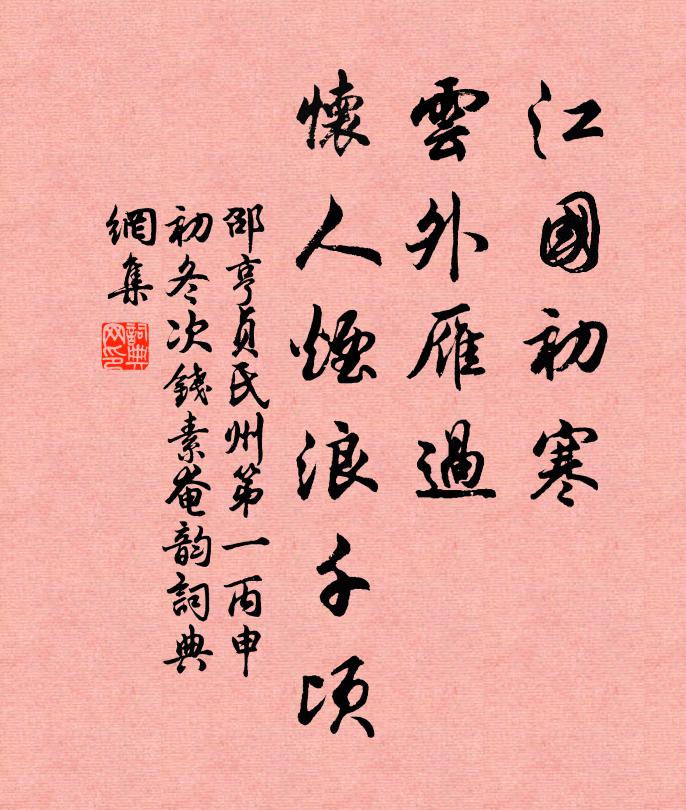 江國初寒
雲外雁過
懷人煙浪千頃
邵亨貞氏州第一丙申
初冬次錢素菴韵詞典
網集
詞典
网印